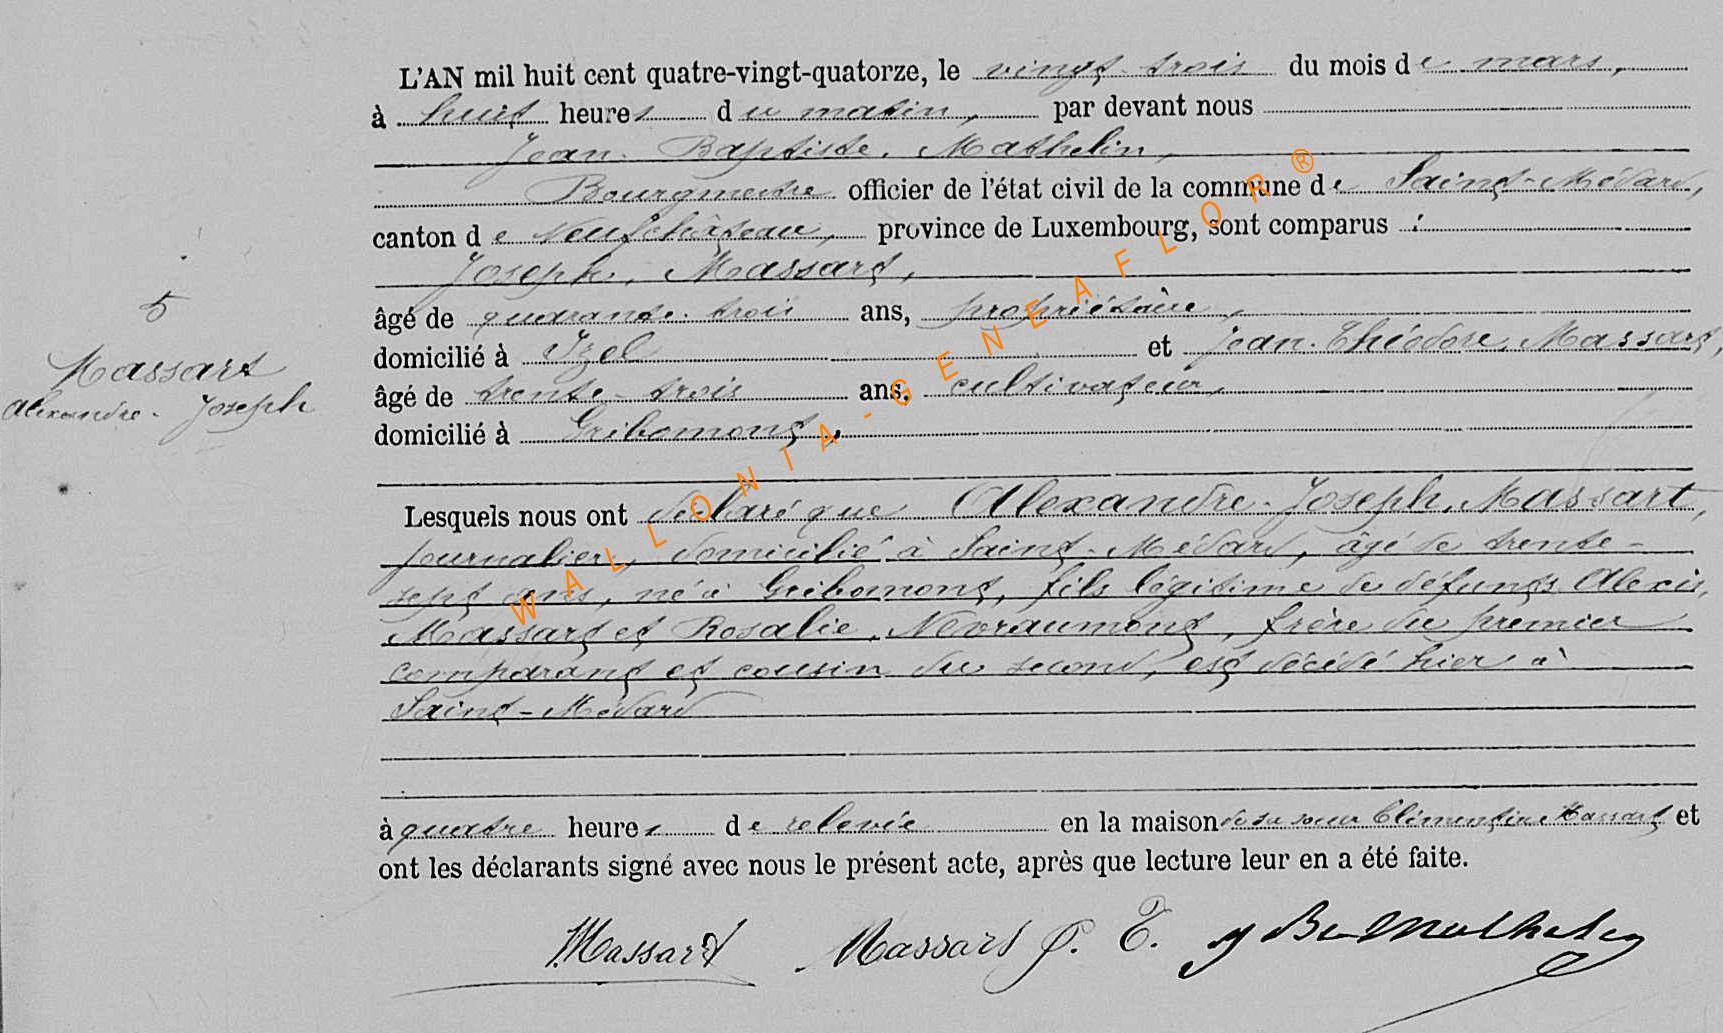 L'AN mil huit cent quatre-vingt-quatorze, le vingt-trois du mois de mars,
à huit heures du matin, par devant nous
Jean-Baptiste, Mathelin,
Bourgmestre officier de l'état civil de la commune de Saint-Médard,
canton de Neufchâteau, province de Luxembourg, sont comparus :
Joseph, Massart,
âgé de quarante-trois ans, propriétaire,
domicilié à Izel et Jean-Théodore, Massart,
âgé de trente-trois ans, cultivateur,
domicilié à Gribomont,
5
Massart
Alexandre-Joseph
Lesquels nous ont déclaré que Alexandre-Joseph, Massart,
journalier, domicilié à Saint-Médard, âgé de trente-
sept ans, né à Gribomont, fils légitime de défunts Alexis,
Massart et Rosalie, Nevraumont, frère du premier
comparant et cousin du second, est décédé hier à
Saint-Médard
à quatre heures de relevée en la maison de sa soeur Clémentine Massart et
ont les déclarants signé avec nous le présent acte, après que lecture leur en a été faite.
Massart Massart J. T. J Bte Mathelin
WALLONIA-GENEAFLOR®